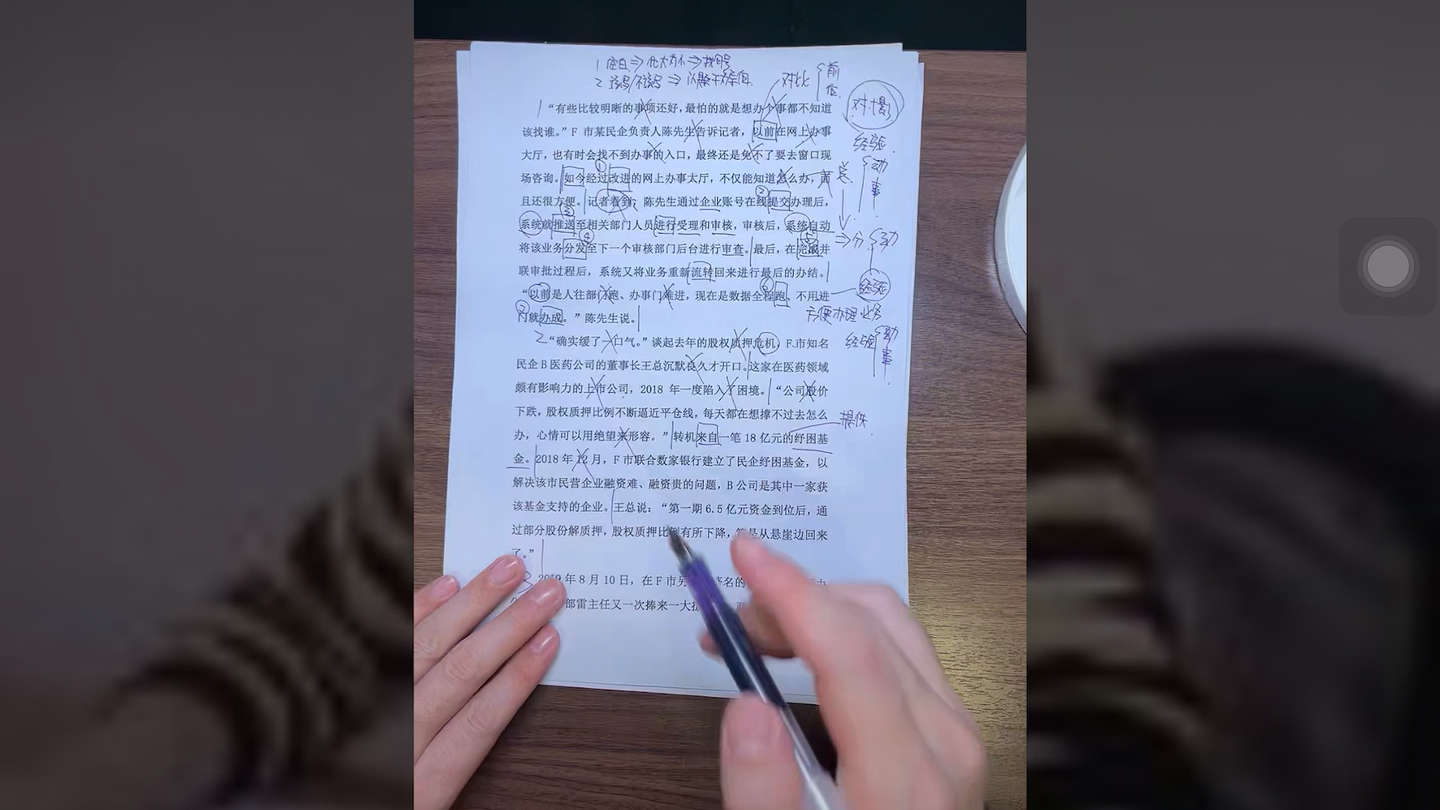 对比
前
对措
经验
动
事
总
"有些比较明晰的事项还好,最怕的就是想办个事都不知道
该找谁。"F 市某民企负责人陈先生告诉记者,以前在网上办事
大厅,也有时会找不到办事的入口,最终还是免不了要去窗口现
场咨询。如今经过改进的网上办事大厅,不仅能知道怎么办,而
且还很方便。记者看到,陈先生通过企业账号在线提交办理后,
系统就推送至相关部门人员进行受理和审核,审核后,系统自动
将该业务分发至下一个审核部门后台进行审查。最后,在完成并
联审批过程后,系统又将业务重新流转回来进行最后的办结。
"以前是人往部门跑、办事门难进,现在是数据全程跑、不用进
门就办成。"陈先生说。
⇒分
动
经验
方便办理业务
经验
动
事
2
"确实缓了一口气。"谈起去年的股权质押危机,F 市知名
民企 B 医药公司的董事长王总沉默良久才开口。这家在医药领域
颇有影响力的上市公司,2018 年一度陷入了困境。"公司股价
下跌,股权质押比例不断逼近平仓线,每天都在想撑不过去怎么
办,心情可以用绝望来形容。"转机来自一笔 18 亿元的纾困基
金。2018 年 12 月,F 市联合数家银行建立了民企纾困基金,以
解决该市民营企业融资难、融资贵的问题,B 公司是其中一家获
该基金支持的企业。王总说:"第一期 6.5 亿元资金到位后,通
过部分股份解质押,股权质押比例有所下降,算是从悬崖边回来
了。"
提供
3
2019 年 8 月 10 日,在 F 市另
部雷主任又一次捧来一大